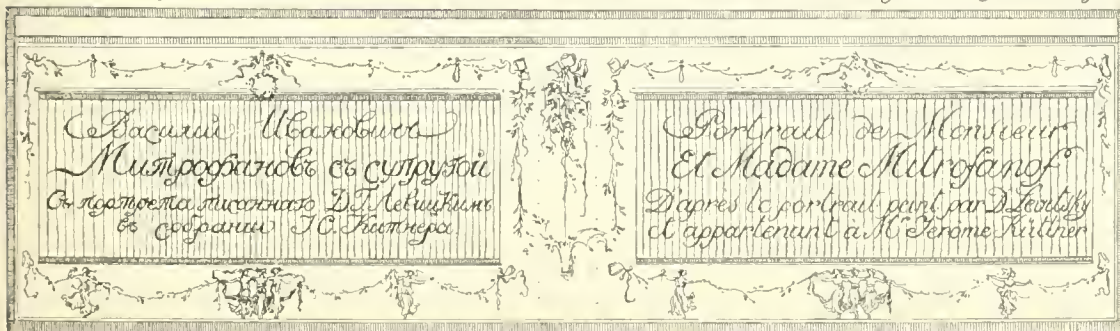 Василий Ивановичъ
Митрофановъ съ супругой
Съ портрета писаннаго Д.Г.Левицкимъ
въ собраніи І.С.Китнера
Portrait de Monsieur
Et Madame Mitrofanof
D'apres le portrait peint par D. Levitsky
et appartenant a Mr Jerome Kittner